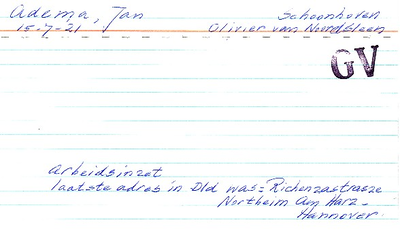 Adema, Jan
15-7-21
Schoonhoven
Olivier van Noordsleen
GV
Arbeidsinzet
laatste adres in Dld was = Richenzastrasze
Northeim Am Harz -
Hannover.